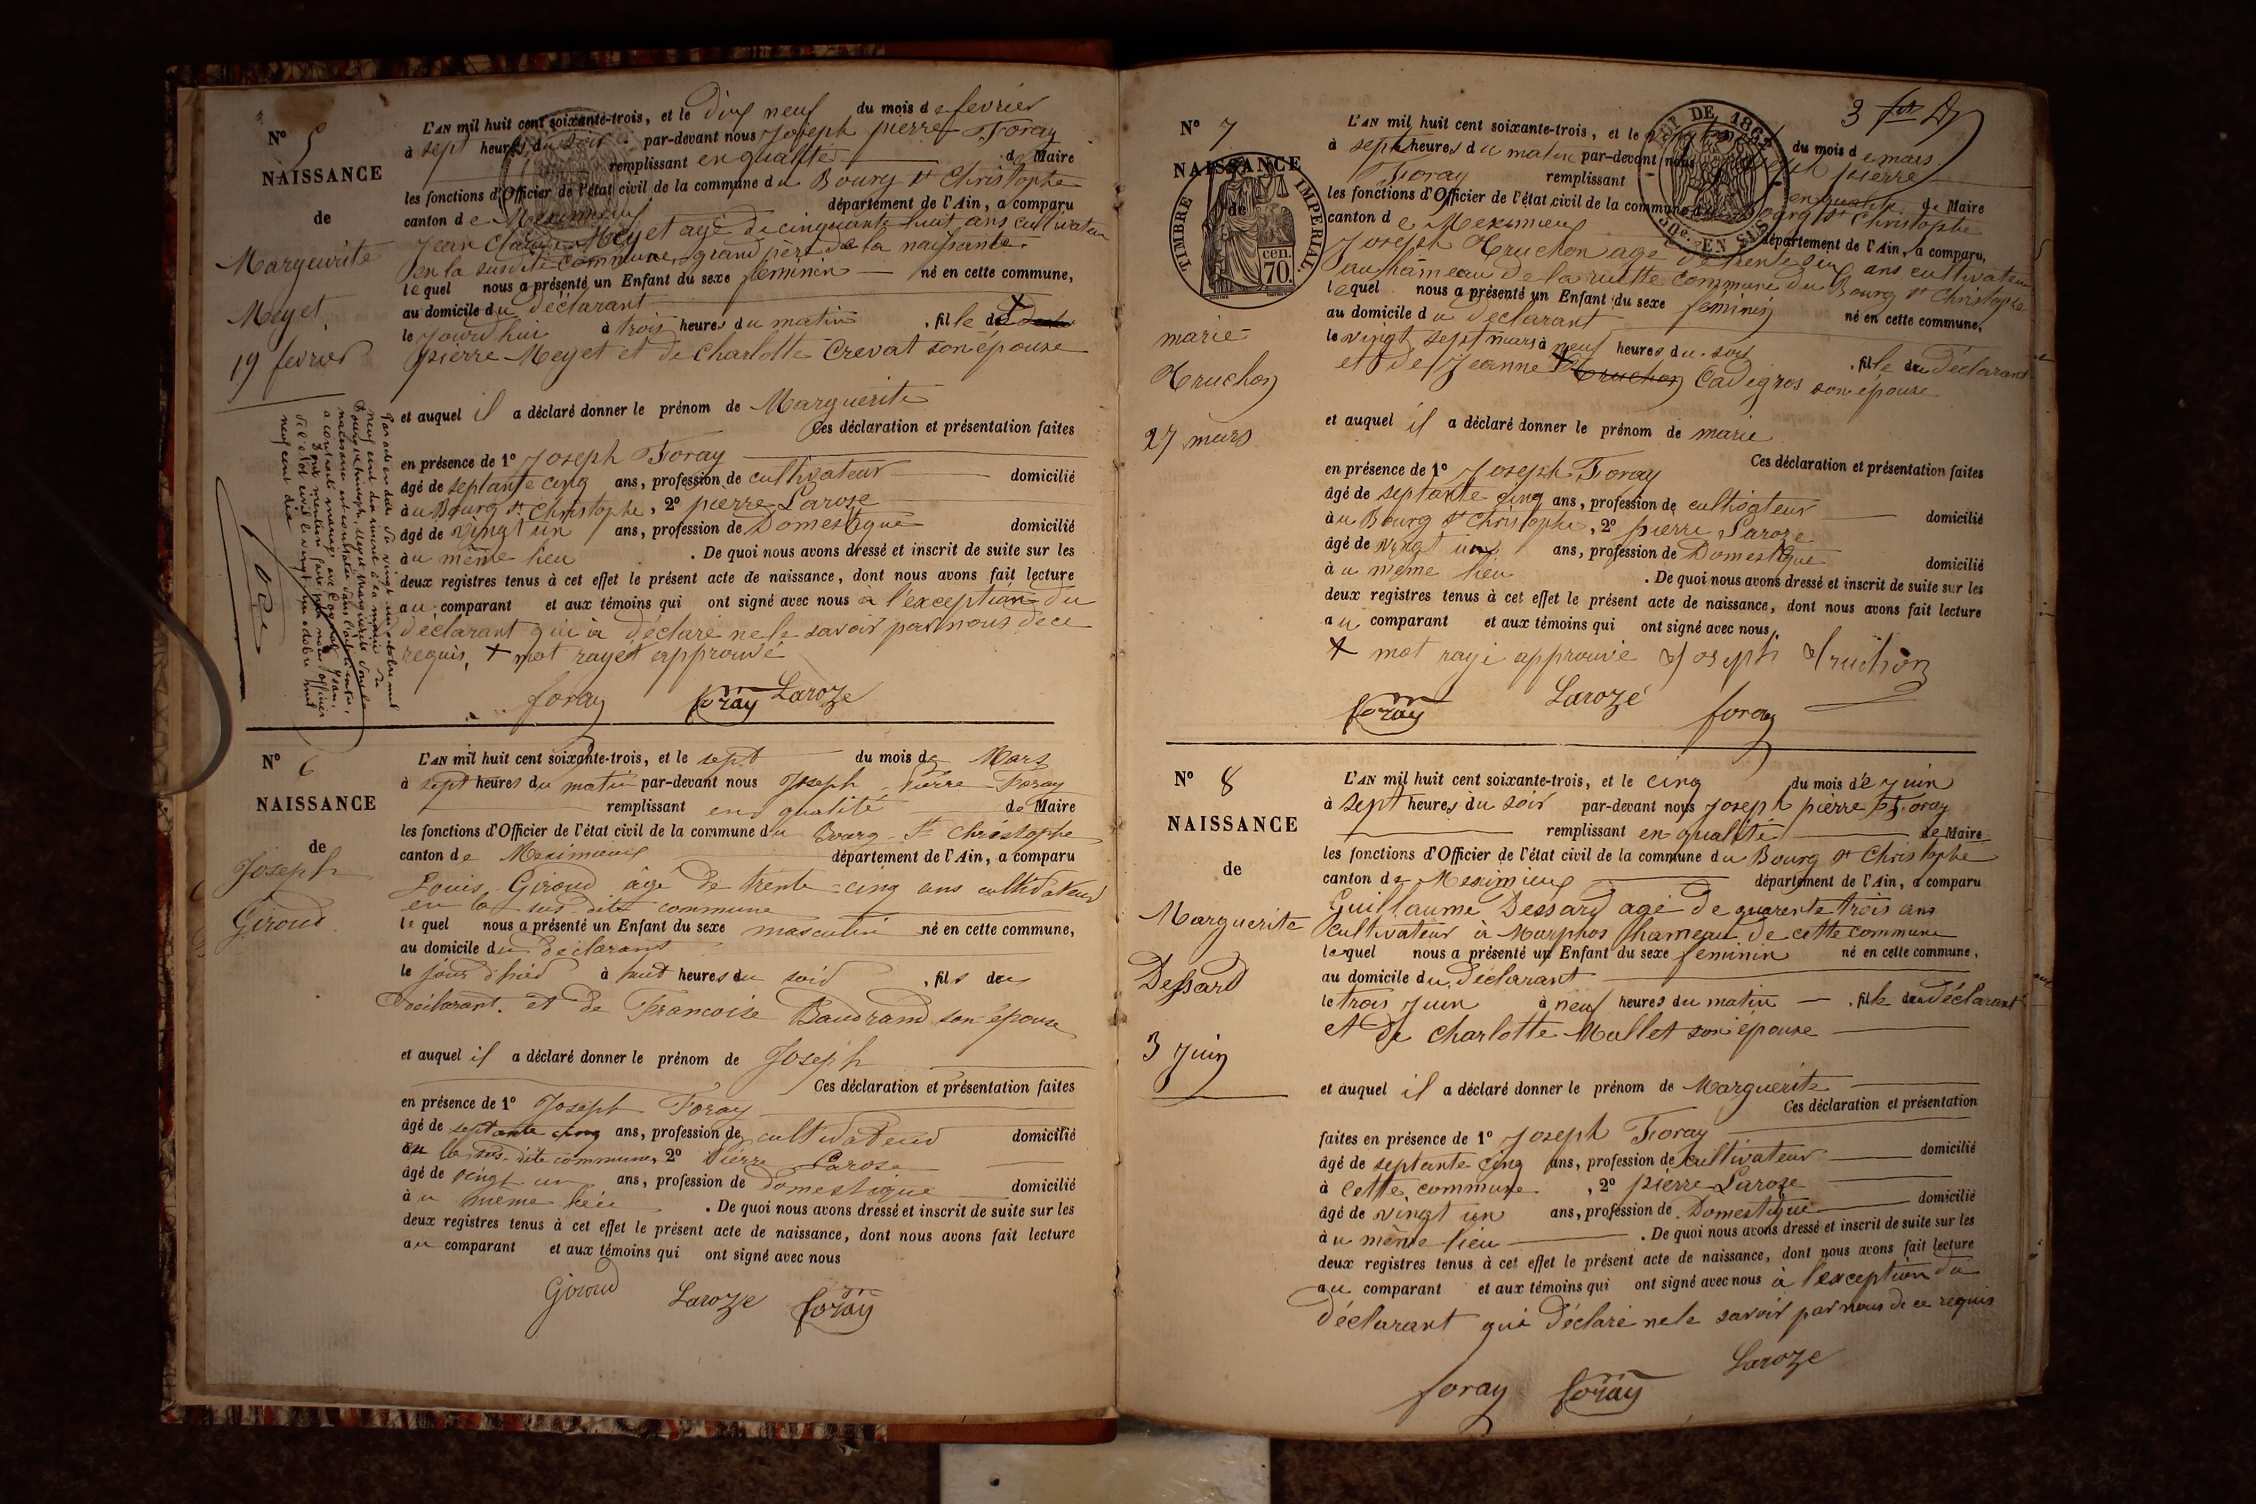 N° 5
NAISSANCE
de
Margeurite
Meyet
19 fevrier
L'AN mil huit cent soixante-trois, et le dix neuf du mois de fevrier
à sept heures du soir par-devant nous Joseph pierre Foray
remplissant en qualité de Maire
les fonctions d'Officier de l'état civil de la commune du Bourg St Christophe
canton de Meximieux département de l'Ain, a comparu
Jean Claude Meyet agé de cinquante huit ans cultivateur
en la susdite commune, grand père de la naissante.
lequel nous a présenté un Enfant du sexe feminin né en cette commune,
au domicile du déclarant
le jourd'hui à trois heures du matin, fille de
pierre Meyet et de Charlotte Crevat son épouse
et auquel il a déclaré donner le prénom de Marguerite
Ces déclaration et présentation faites
en présence de 1° Joseph Foray
âgé de septante cinq ans, profession de cultivateur domicilié
à u Bourg St Christophe, 2° pierre Laroze
âgé de vingt un ans, profession de Domestique domicilié
à u même lieu. De quoi nous avons dressé et inscrit de suite sur les
deux registres tenus à cet effet le présent acte de naissance, dont nous avons fait lecture
au comparant et aux témoins qui ont signé avec nous a l'exception du
déclarant qui a déclaré ne le savoir par nous de ce
requis, + mot rayét approuvé
foray foray Laroze
N° 6
NAISSANCE
de
Joseph
Giroud
L'AN mil huit cent soixante-trois, et le sept du mois de Mars
à sept heures du matin par-devant nous Joseph Pierre Foray
remplissant en qualité de Maire
les fonctions d'Officier de l'état civil de la commune du Bourg St Christophe
canton de Meximieux département de l'Ain, a comparu
Louis Giroud âgé de trente-cinq ans cultivateur
en la sus-dite commune
lequel nous a présenté un Enfant du sexe masculin né en cette commune,
au domicile du déclarant
le jour d'hier à huit heures du soir, fils du
déclarant et de Francoise Baudrand son épouse
et auquel il a déclaré donner le prénom de Joseph
Ces déclaration et présentation faites
en présence de 1° Joseph Foray
âgé de septante cinq ans, profession de cultivateur domicilié
en la sus-dite commune, 2° Pierre Laroze
âgé de vingt un ans, profession de domestique domicilié
à u même lieu. De quoi nous avons dressé et inscrit de suite sur les
deux registres tenus à cet effet le présent acte de naissance, dont nous avons fait lecture
au comparant et aux témoins qui ont signé avec nous
Giroud Laroze foray
3
N° 7
NAISSANCE
de
TIMBRE IMPERIAL
70 cen.
marie
Truchon
27 mars
L'AN mil huit cent soixante-trois, et le du mois de mars
à sept heures du matin par-devant nous pierre
Foray remplissant en qualité de Maire
les fonctions d'Officier de l'état civil de la commune du Bourg St Christophe
canton de Meximieux département de l'Ain, a comparu,
Joseph Truchon agé de trente six ans cultivateur
au hameau de la ruette commune du Bourg St Christophe
lequel nous a présenté un Enfant du sexe feminin né en cette commune,
au domicile du déclarant
le vingt sept mars à neuf heures du soir, fille du déclarant
et de Jeanne Truchon Cadigros son épouse
et auquel il a déclaré donner le prénom de marie
Ces déclaration et présentation faites
en présence de 1° Joseph Foray
âgé de septante cinq ans, profession de cultivateur domicilié
à u Bourg St Christophe, 2° pierre Laroze
âgé de vingt un ans, profession de Domestique domicilié
à u même lieu. De quoi nous avons dressé et inscrit de suite sur les
deux registres tenus à cet effet le présent acte de naissance, dont nous avons fait lecture
au comparant et aux témoins qui ont signé avec nous.
+ mot rayé approuvé Joseph Truchon
foray Laroze foray
N° 8
NAISSANCE
de
Marguerite
Dessard
3 Juin
L'AN mil huit cent soixante-trois, et le cinq du mois de Juin
à sept heures du soir par-devant nous Joseph pierre Foray
remplissant en qualité de Maire
les fonctions d'Officier de l'état civil de la commune du Bourg St Christophe
canton de Meximieux département de l'Ain, a comparu
Guillaume Dessard agé de quarente trois ans
cultivateur à Marphos hameau de cette commune
lequel nous a présenté un Enfant du sexe feminin né en cette commune,
au domicile du déclarant
le trois Juin à neuf heures du matin, fille du déclarant
et de Charlotte Mallet son épouse
et auquel il a déclaré donner le prénom de Marguerite
Ces déclaration et présentation
faites en présence de 1° Joseph Foray
âgé de septante cinq ans, profession de cultivateur domicilié
à cette commune, 2° pierre Laroze
âgé de vingt un ans, profession de Domestique domicilié
à u même lieu. De quoi nous avons dressé et inscrit de suite sur les
deux registres tenus à cet effet le présent acte de naissance, dont nous avons fait lecture
au comparant et aux témoins qui ont signé avec nous à l'exception du
déclarant qui déclaré ne le savoir par nous de ce requis
foray foray Laroze